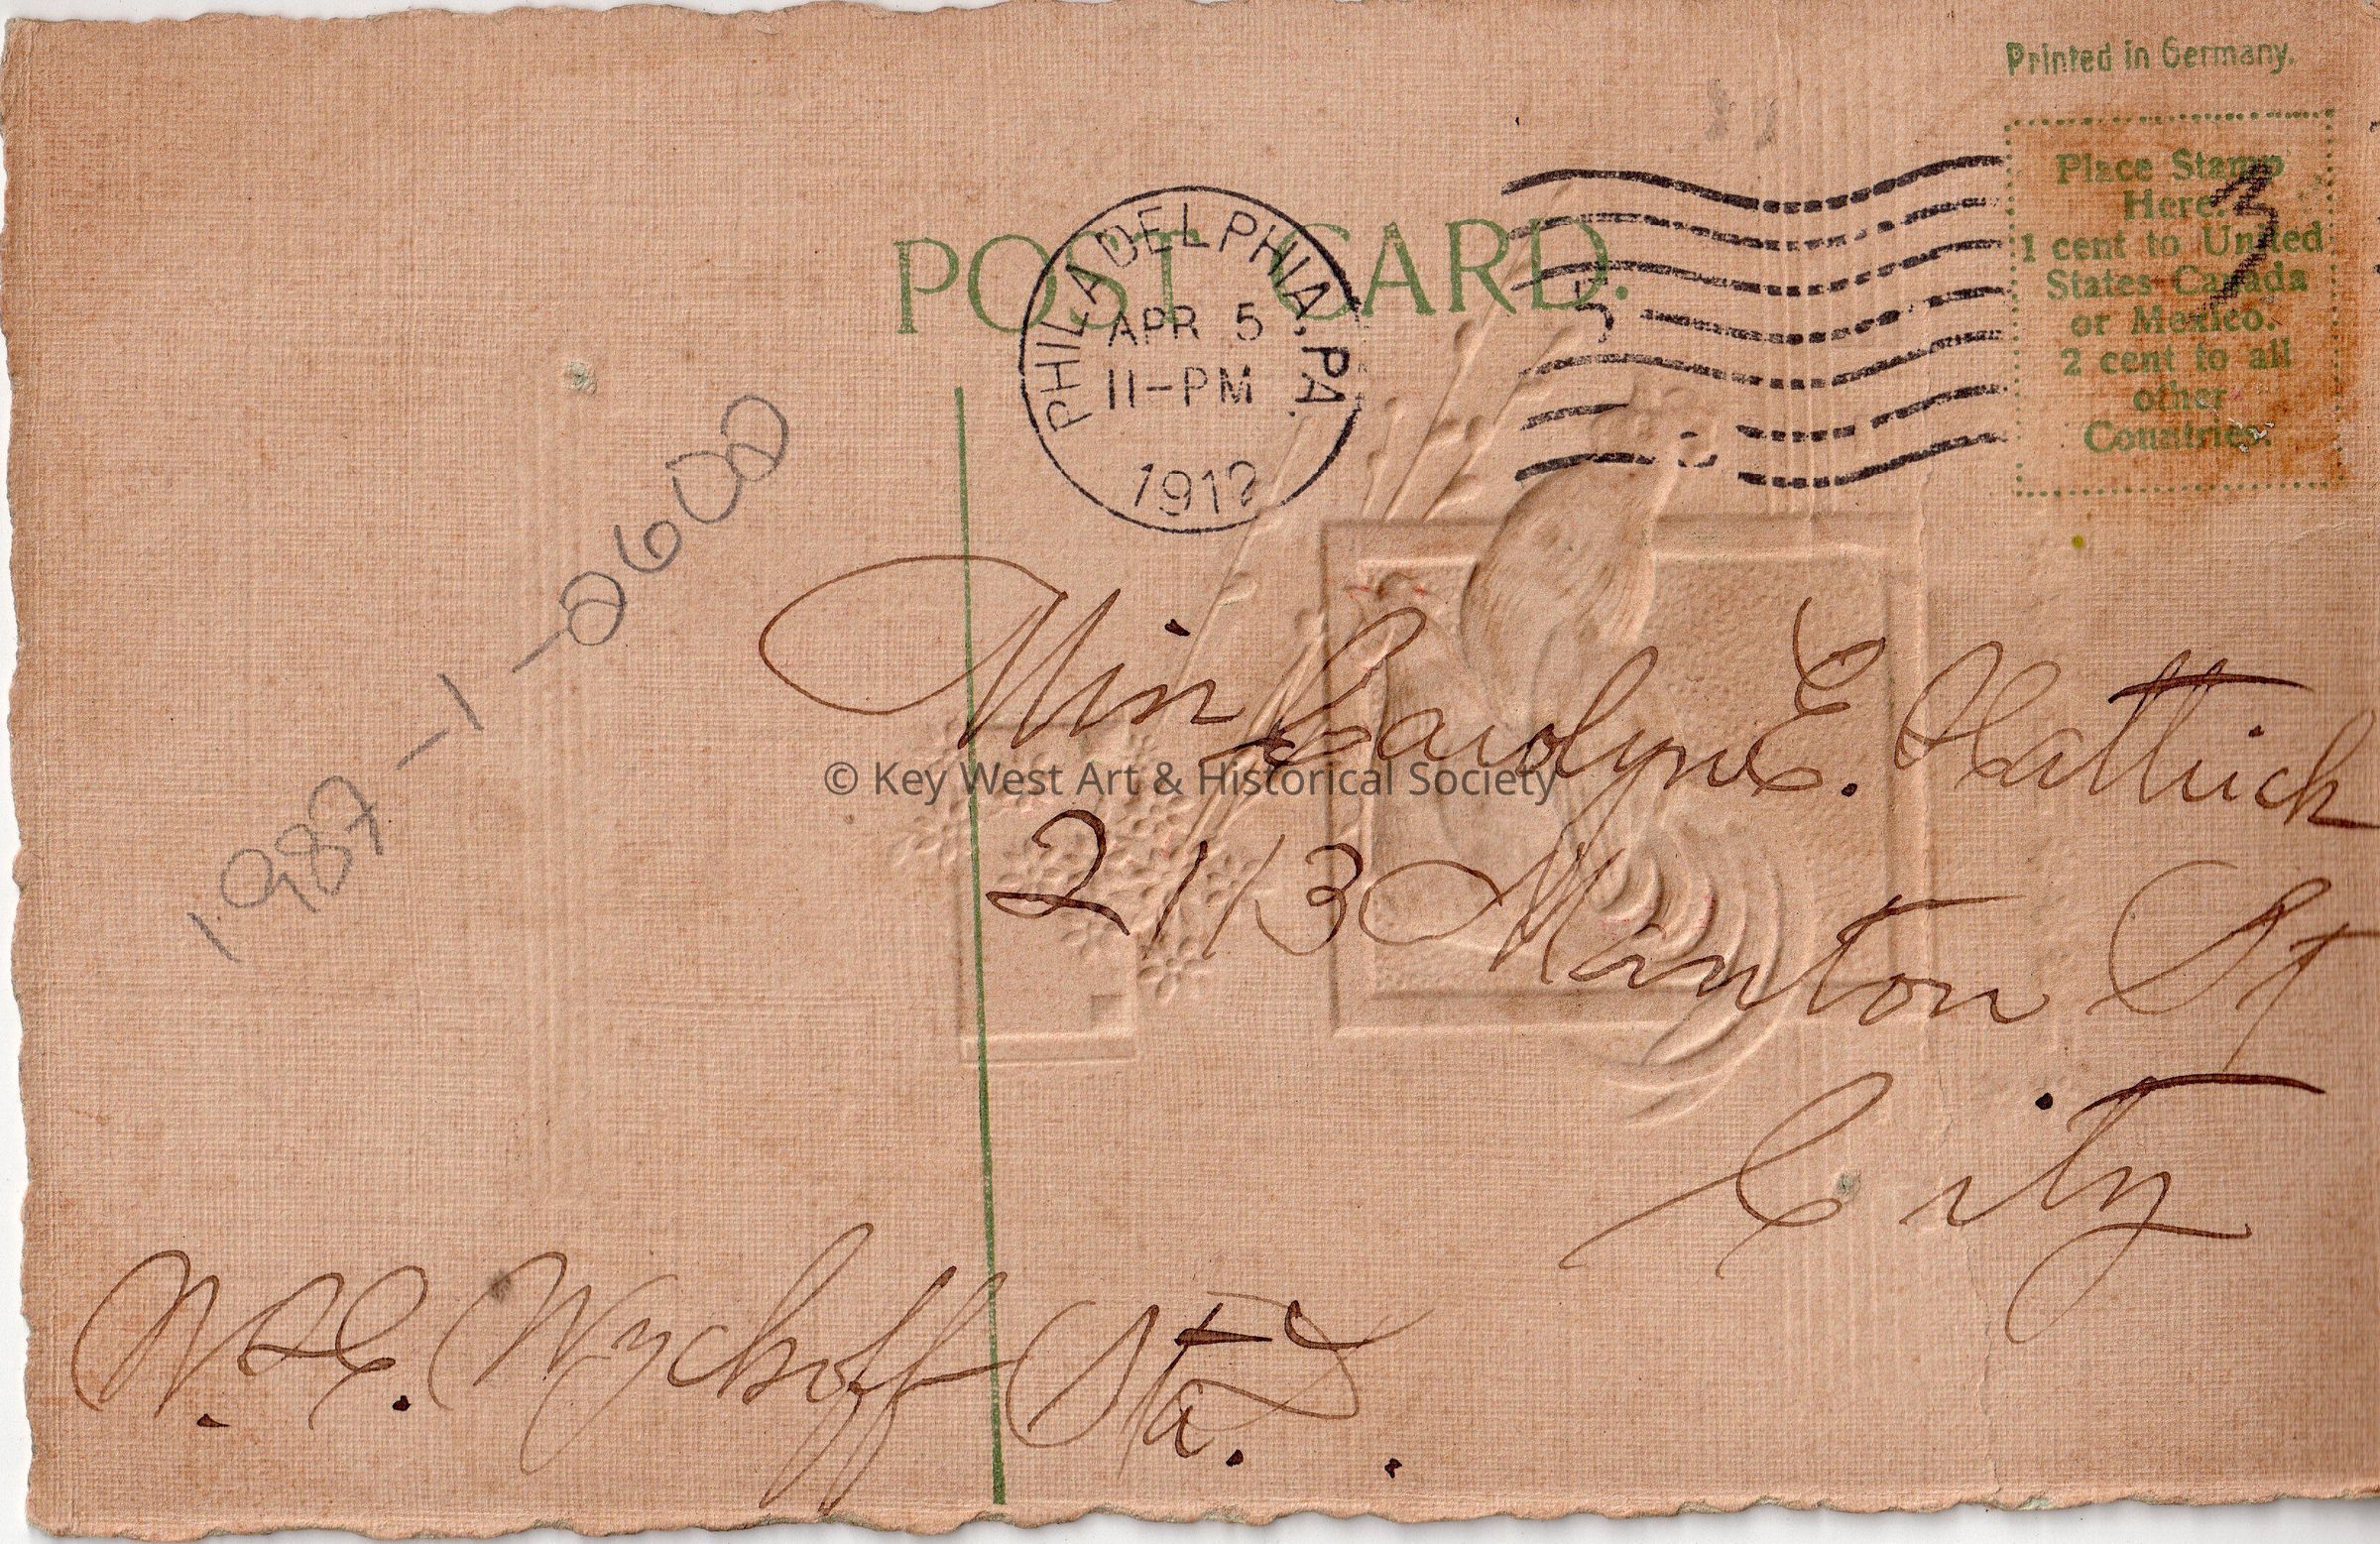 Printed in Germany.
Place Stamp
Here.
1 cent to United
States Canada
or Mexico.
2 cent to all
other
Countries.
3
POST CARD.
PHILADELPHIA, PA.
APR 5
11-PM
1912
1987-1-2600
Miss Carolyn E. Hattrich
2113 Manton St
City
© Key West Art & Historical Society
Wyckoff Sta.